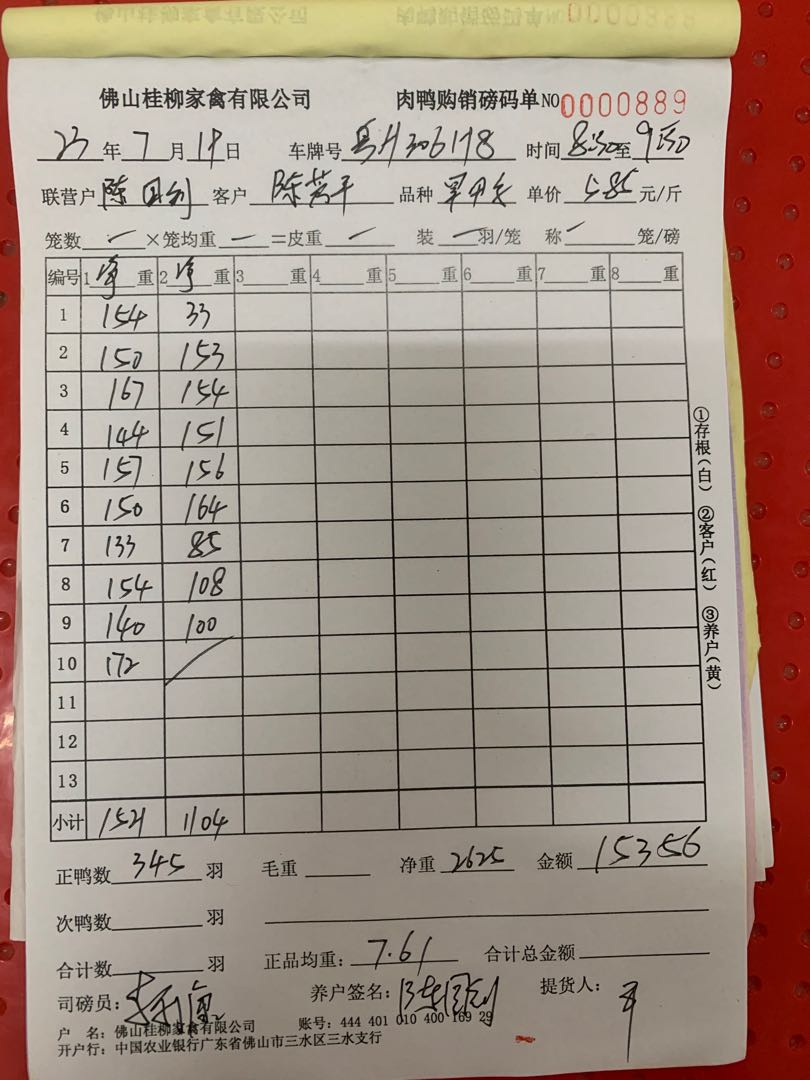 佛山桂柳家禽有限公司 肉鸭购销磅码单 NO 0000889
23 年 7 月 19 日 车牌号 时间 8:30 至 9:50
联营户 陈 客户 陈 品种 单价 5.85 元/斤
笼数 一 ×笼均重 一 =皮重 一 装 一 羽/笼 称 一 笼/磅
编号 1 净 重 2 净 重 3 重 4 重 5 重 6 重 7 重 8 重
1 154 33
2 150 153
3 167 154
4 144 151
5 157 156
6 150 164
7 133 85
8 154 108
9 140 100
10 172
11
12
13
小计 1521 1104
正鸭数 345 羽 毛重 净重 2625 金额 15356
次鸭数 羽
合计数 羽 正品均重: 7.61 合计总金额
司磅员: 养户签名: 提货人:
户 名: 佛山桂柳家禽有限公司 账号: 444 401 010 400 169 29
开户行: 中国农业银行广东省佛山市三水区三水支行
①存根(白) ②客户(红) ③养户(黄)